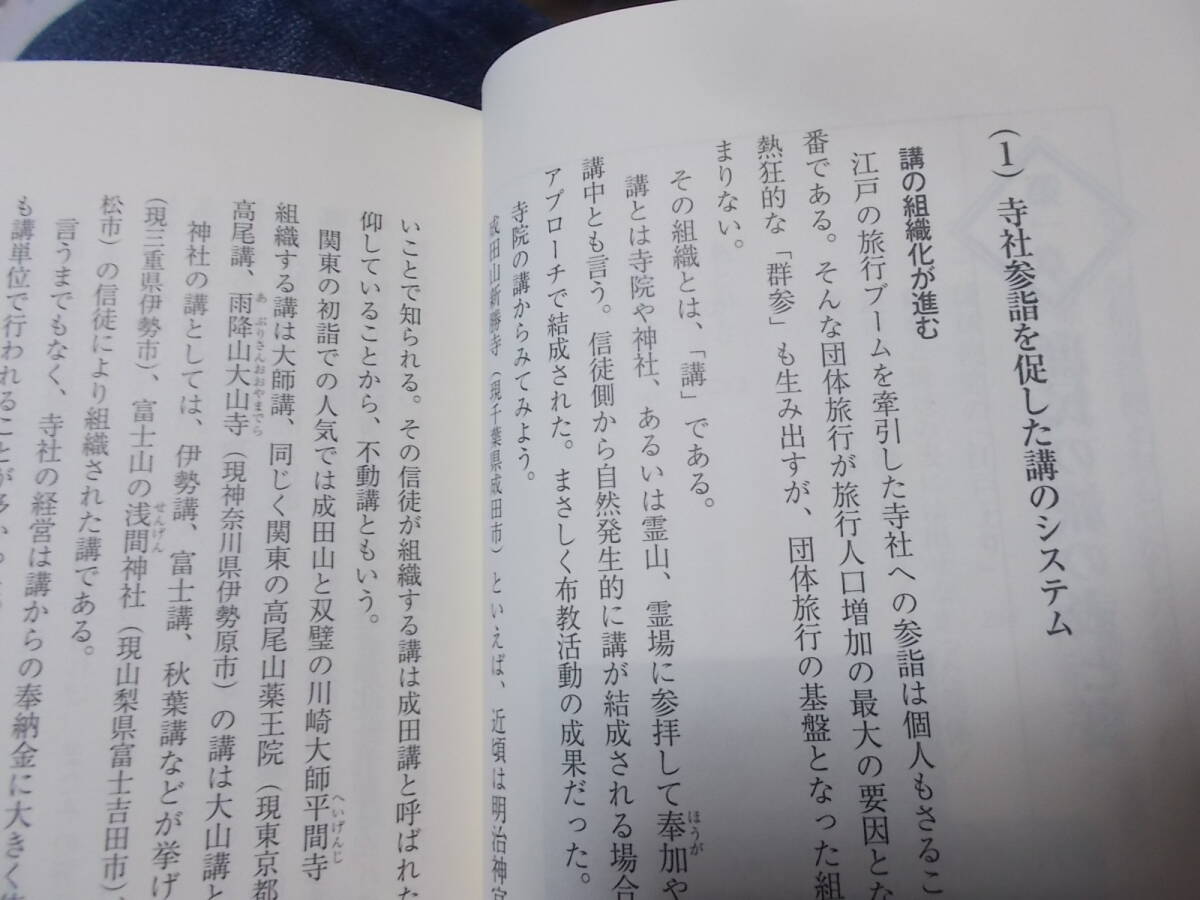 (1) 寺社参詣を促した講のシステム
講の組織化が進む
江戸の旅行ブームを牽引した寺社への参詣は個人もさるこ
番である。そんな団体旅行が旅行人口増加の最大の要因とな
熱狂的な「群参」も生み出すが、団体旅行の基盤となった組
まりない。
その組織とは、「講」である。
講とは寺院や神社、あるいは霊山、霊場に参拝して奉加や
ほうが
講中とも言う。信徒側から自然発生的に講が結成される場合
アプローチで結成された。まさしく布教活動の成果だった。
寺院の講からみてみよう。
成田山新勝寺(現千葉県成田市)といえば、近頃は明治神宮
いことで知られる。その信徒が組織する講は成田講と呼ばれた
仰していることから、不動講ともいう。
関東の初詣での人気では成田山と双璧の川崎大師平間寺
へいげんじ
組織する講は大師講、同じく関東の高尾山薬王院(現東京都
高尾講、雨降山大山寺(現神奈川県伊勢原市)の講は大山講と
あぶりさんおおやまでら
神社の講としては、伊勢講、富士講、秋葉講などが挙げ
(現三重県伊勢市)、富士山の浅間神社(現山梨県富士吉田市)
せんげん
松市)の信徒により組織された講である。
言うまでもなく、寺社の経営は講からの奉納金に大きく
も講単位で行われることが多か